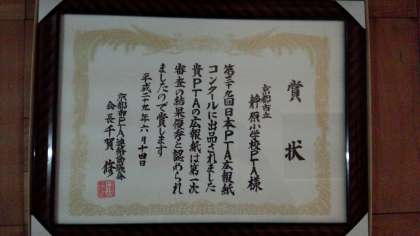 賞状
京都市立
静原小学校PTA様
第三十九回日本PTA広報紙
コンクールに出品されました
貴PTAの広報紙は第一次
審査の結果優秀と認められ
ましたので賞します
平成二十九年六月十四日
京都市PTA連絡協議会
会長千賀修